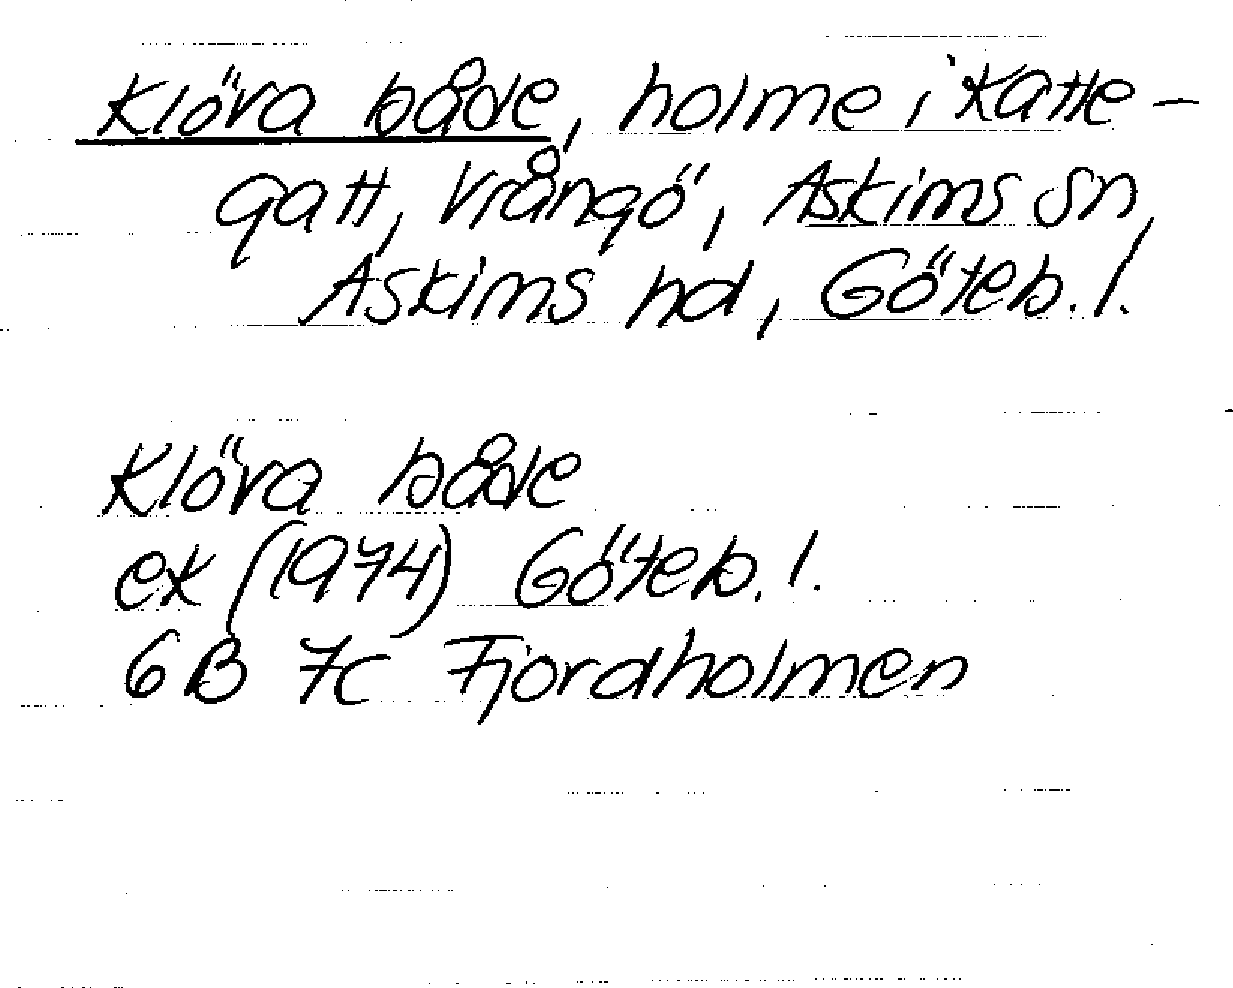 Klöva både, holme i Katte-
gatt, Vrångö, Askims sn,
Askims hd, Göteb. l.
Klöva både
ek (1974) Göteb. l.
6B 7c Fjordholmen